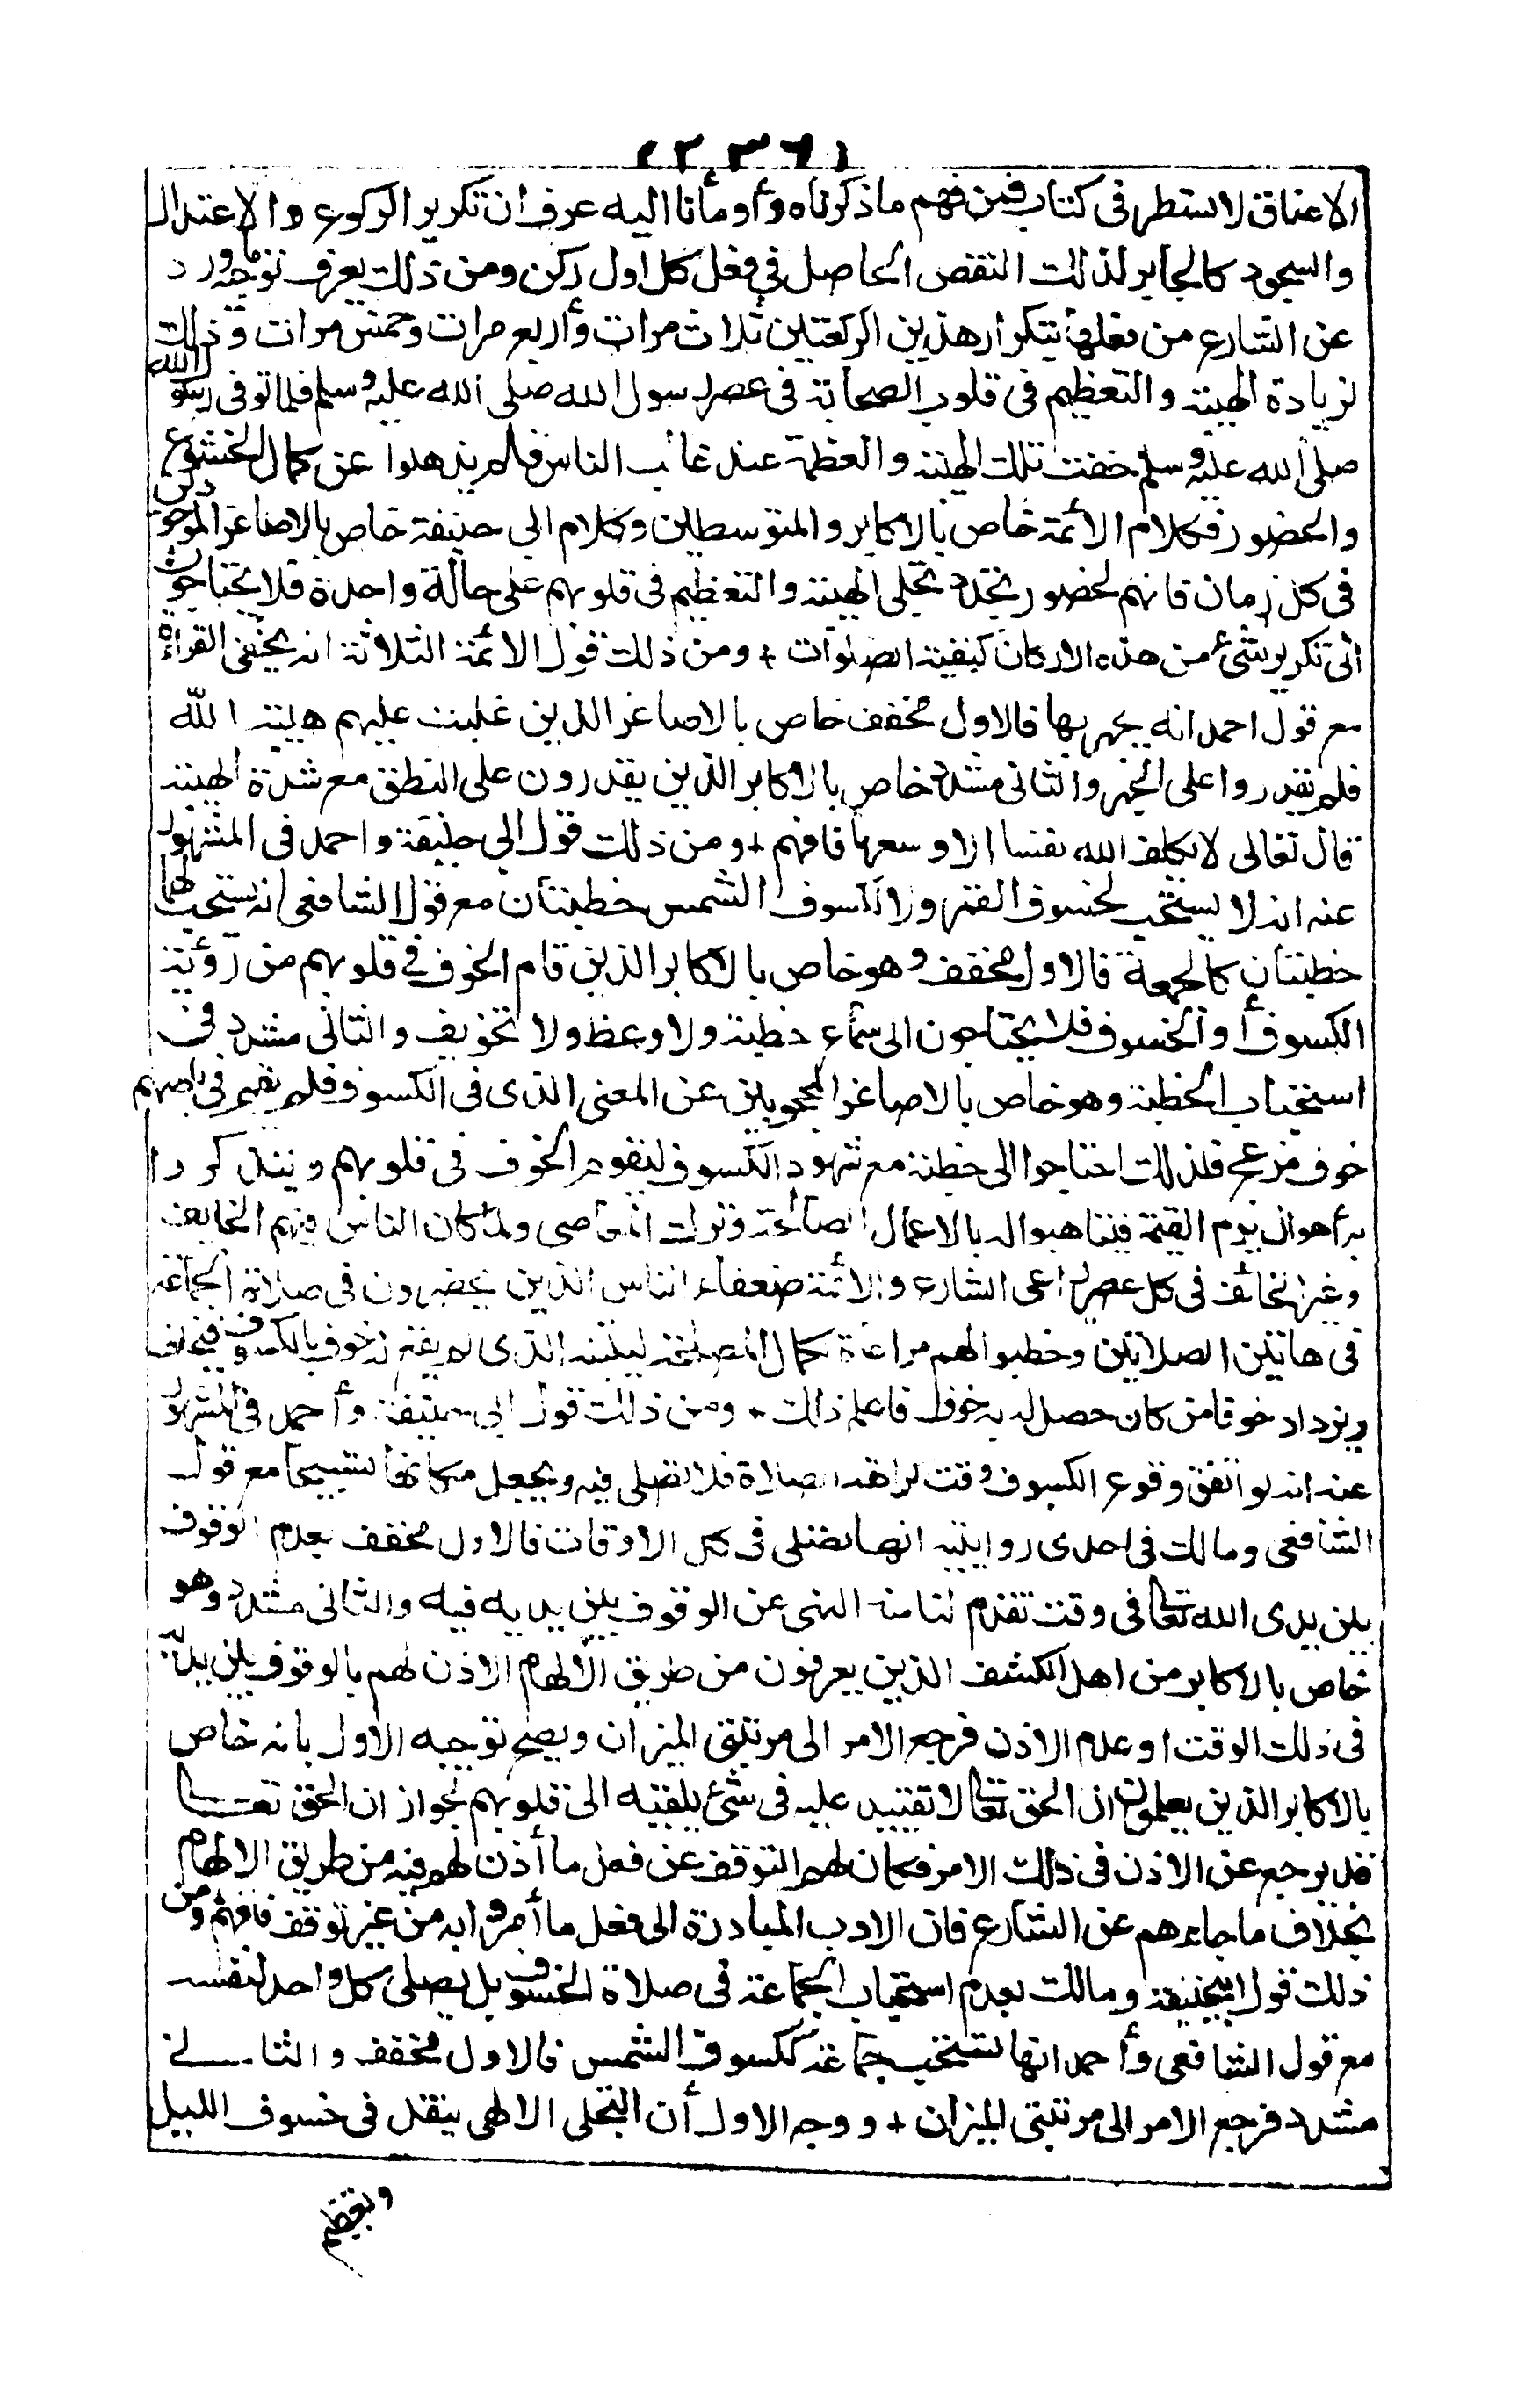 (٢٣٦)
الاعناق لا تسطر فى كتاب فمن فهم ما ذكرناه وأومأنا اليه عرف ان تكرير الركوع والاعتدال
والسجود كالجابر لذلك النقص الحاصل فى فعل كل اول ركن ومن ذلك يعرف توجيه ما ورد
عن الشارع من فعلها بتكرار هذين الركعتين ثلاث مرات وأربع مرات وخمس مرات وذلك
لزيادة الهيبة والتعظيم فى قلوب الصحابة فى عصر رسول الله صلى الله عليه وسلم فلما توفى رسول الله
صلى الله عليه وسلم خفت تلك الهيبة والعظمة عند غالب الناس فلم يذهلوا عن كمال الخشوع
والحضور فكلام الأئمة خاص بالاكابر والمتوسطين وكلام ابى حنيفة خاص بالاصاغر الموجودين
فى كل زمان فانهم لحضور تجلى الهيبة والتعظيم فى قلوبهم على حالة واحدة فلا يحتاجون
الى تكرير شئ من هذه الاركان كبقية الصلوات + ومن ذلك قول الأئمة الثلاثة انه يخفى القراءة
مع قول احمد انه يجهر بها فالاول مخفف خاص بالاصاغر الذين غلبت عليهم هيبة الله
فلم يقدروا على الجهر والثانى مشدد خاص بالاكابر الذين يقدرون على النطق مع شدة الهيبة
قال تعالى لا يكلف الله نفسا الا وسعها فافهم + ومن ذلك قول ابى حنيفة واحمد فى المشهور
عنه انه لا يستحب لخسوف القمر ولا لكسوف الشمس خطبتان مع قول الشافعى انه يستحب لهما
خطبتان كالجمعة فالاول مخفف وهو خاص بالاكابر الذين قام الخوف فى قلوبهم من رؤية
الكسوف أو الخسوف فلا يحتاجون الى سماع خطبة ولا وعظ ولا تخويف والثانى مشدد فى
استحباب الخطبة وهو خاص بالاصاغر المحجوبين عن المعنى الذى فى الكسوف فلم يقم فى باطنهم
خوف مزعج فلذلك احتاجوا الى خطبة مع شهود الكسوف ليقوم الخوف فى قلوبهم ويتذكروا
به أهوال يوم القيمة فيتاهبوا له بالاعمال الصالحة وترك المعاصى ولما كان الناس فيهم الخايف
وغير الخائف فى كل عصر راعى الشارع والأئمة ضعفاء الناس الذين يحضرون فى صلاة الجماعة
فى هاتين الصلاتين وخطبوا لهم مراعاة لكمال المصلحة ليتنبه الذى لم يقم به خوف بالكسوف فيخاف
ويزداد خوفا من كان حصل له به خوف فاعلم ذلك + ومن ذلك قول ابى حنيفة وأحمد فى المشهور
عنه انه لو اتفق وقوع الكسوف وقت كراهة الصلاة فلا تصلى فيه ويجعل مكانها تسبيحا مع قول
الشافعى ومالك فى احدى روايتيه انها تصلى فى كل الاوقات فالاول مخفف بعدم الوقوف
بين يدى الله تعالى فى وقت تقدم لنا منه النهى عن الوقوف بين يديه فيه والثانى مشدد وهو
خاص بالاكابر من اهل الكشف الذين يعرفون من طريق الالهام الاذن لهم بالوقوف بين يديه
فى ذلك الوقت او عدم الاذن فرجع الامر الى مرتبتى الميزان ويصح توجيه الاول بانه خاص
بالاكابر الذين يعلمون ان الحق تعالى لا تقييد عليه فى شئ يلقيه الى قلوبهم لجواز ان الحق تعالى
قد يرجع عن الاذن فى ذلك الامر فكان لهم التوقف عن فعل ما أذن لهم فيه من طريق الالهام
بخلاف ما جاءهم عن الشارع فان الادب المبادرة الى فعل ما أمروا به من غير توقف فافهم ومن
ذلك قول ابيحنيفة ومالك بعدم استحباب الجماعة فى صلاة الخسوف بل يصلى كل واحد لنفسه
مع قول الشافعى وأحمد انها تستحب جماعة ككسوف الشمس فالاول مخفف والثانى
مشدد فرجع الامر الى مرتبتى الميزان + ووجه الاول أن التجلى الالهى يثقل فى خسوف الليل